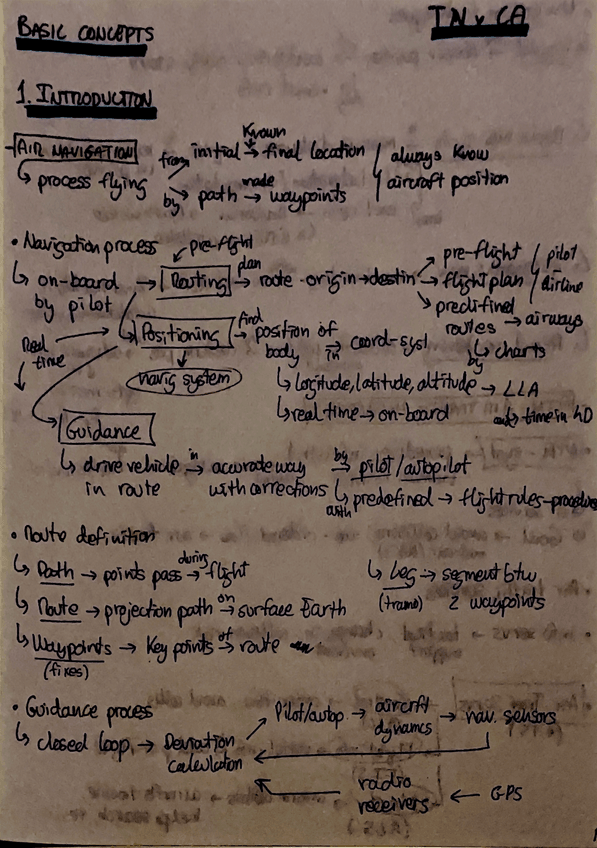 BASIC CONCEPTS
TN y CA
1. INTRODUCTION
AIR NAVIGATION
↳ process flying from initial Known → final location / always know
by path made → waypoints / aircraft position
• Navigation process ↙ pre-flight
↳ on-board → Routing plan → route origin → destin → pre-flight / pilot
by pilot flight plan / airline
predifined routes → airways
↳ by charts
Real time → Positioning find → position of body in ⇒ coord-syst
navig system
↳ longitude, latitude, altitude → LLA
↳ real time → on-board → time in 4D
Guidance
↳ drive vehicle in → accurate way by → pilot/autopilot
in route with corrections with ↳ predefined → flight rules-procedure
• Route definition
↳ Path → points pass during → flight ↳ Leg → segment btw
↳ Route → projection path on → surface Earth (tramo) 2 waypoints
↳ Waypoints → Key points of → route
(fixes)
• Guidance process
↳ closed loop → Deviation calculation
Pilot/autop. → aircrft dynamcs → nav. sensors
radio receivers ← GPS
1